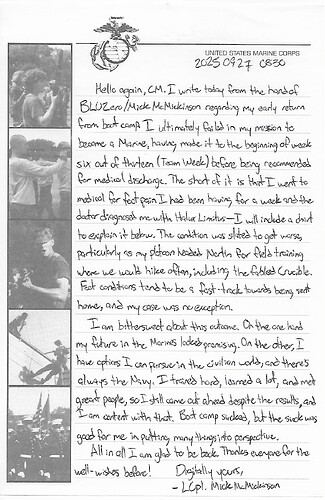 UNITED STATES MARINE CORPS
2025 0927 0830
Hello again, CM. I write today from the hand of
BLUZero/Mick McMickinson regarding my early return
from boot camp. I ultimately failed in my mission to
become a Marine, having made it to the beginning of week
six out of thirteen (Team Week) before being recommended
for medical discharge. The short of it is that I went to
medical for foot pain I had been having for a week and the
doctor diagnosed me with Halux Limitus—I will include a chart
to explain it below. The condition was slated to get worse,
particularly as my platoon headed North for field training
where we would hike often, including the fabled Crucible.
Foot conditions tend to be a fast-track towards being sent
home, and my case was no exception.
I am bittersweet about this outcome. On the one hand
my future in the Marines looked promising. On the other, I
have options I can pursue in the civilian world, and there's
always the Navy. I trained hard, learned a lot, and met
great people, so I still came out ahead despite the results, and
I am content with that. Boot camp sucked, but the suck was
good for me in putting many things into perspective.
All in all I am glad to be back. Thanks everyone for the
well-wishes before! Digitally yours,
- LCpl. Mick McMickinson